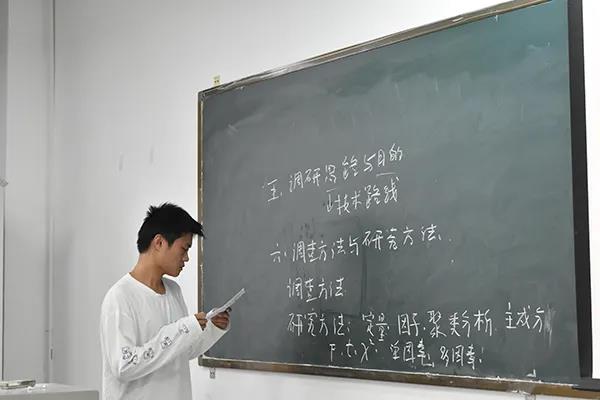 五、调研思路与目的
技术路线
六、调查方法与研究方法.
调查方法
研究方法: 定量 因子.聚类分析 主成分
F.t.χ². 单因素、多因素.